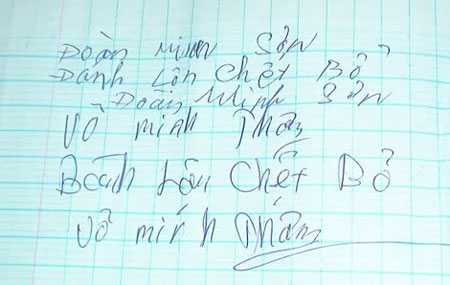 Đoàn Minh Sơn
Đánh Lộn Chết Bổ
Đoàn Minh Sơn
Võ minh Thắm
Đánh Lộn Chết Bổ
Võ minh Thắm